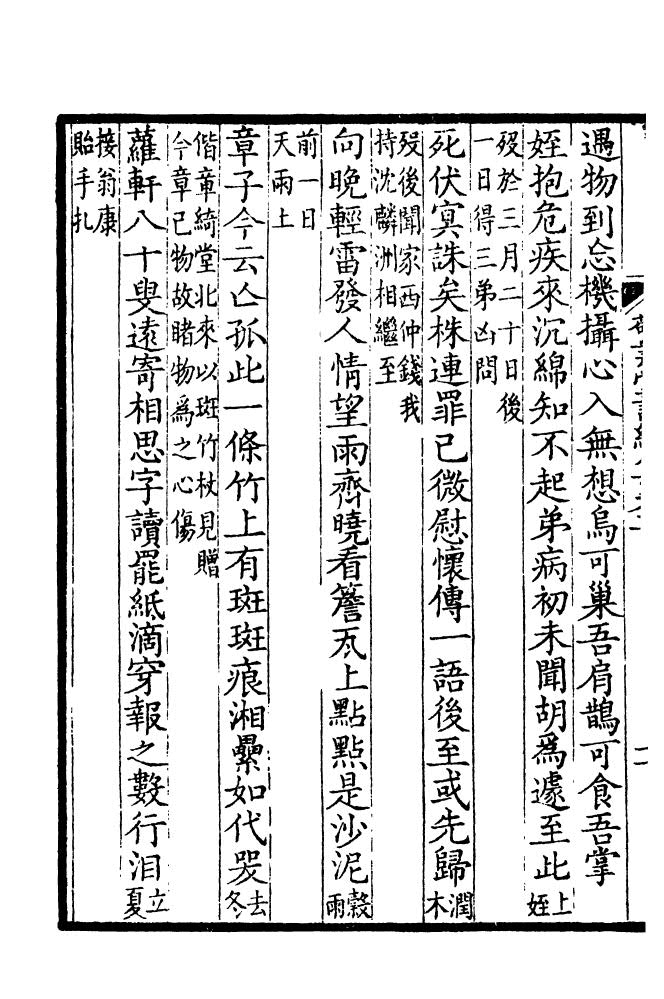 遇物到忘機攝心入無想烏可巢吾肩鵲可食吾掌
姪抱危疾來沉綿知不起弟病初未聞胡爲遽至此上姪
歿於三月二十日後
一日得三弟凶問
死伏冥誅矣株連罪已微慰懷傳一語後至或先歸潤木
歿後聞家西仲錢我
持沈麟洲相繼至
向晚輕雷發人情望雨齊曉看簷瓦上點點是沙泥穀雨
前一日
天雨土
章子今云亡孤此一條竹上有斑斑痕湘纍如代哭去冬
偕章綺堂北來以斑竹杖見贈
今章已物故睹物爲之心傷
蘿軒八十叟遠寄相思字讀罷紙滴穿報之數行淚立夏
接翁康
貽手札